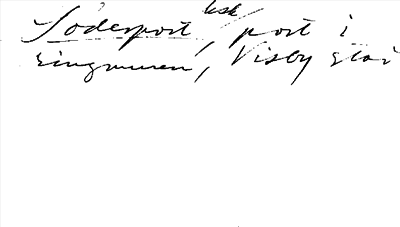 Söderport, port i
ringmuren, Visby